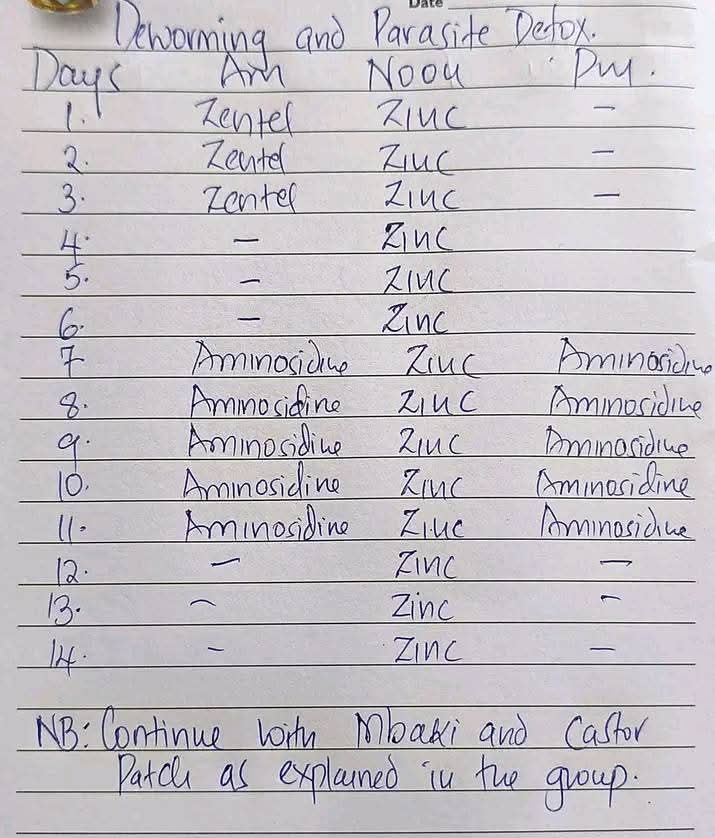 Date
Deworming and Parasite Detox.
Days Am Noon Pm.
1. Zentel Zinc –
2. Zentel Zinc –
3. Zentel Zinc –
4. – Zinc
5. – Zinc
6. – Zinc
7 Aminosidine Zinc Aminosidine
8. Aminosidine Zinc Aminosidine
9. Aminosidine Zinc Aminosidine
10. Aminosidine Zinc Aminosidine
11. Aminosidine Zinc Aminosidine
12. – Zinc –
13. – Zinc –
14. – Zinc –
NB: Continue with Mbaki and Castor
Patch as explained in the group.